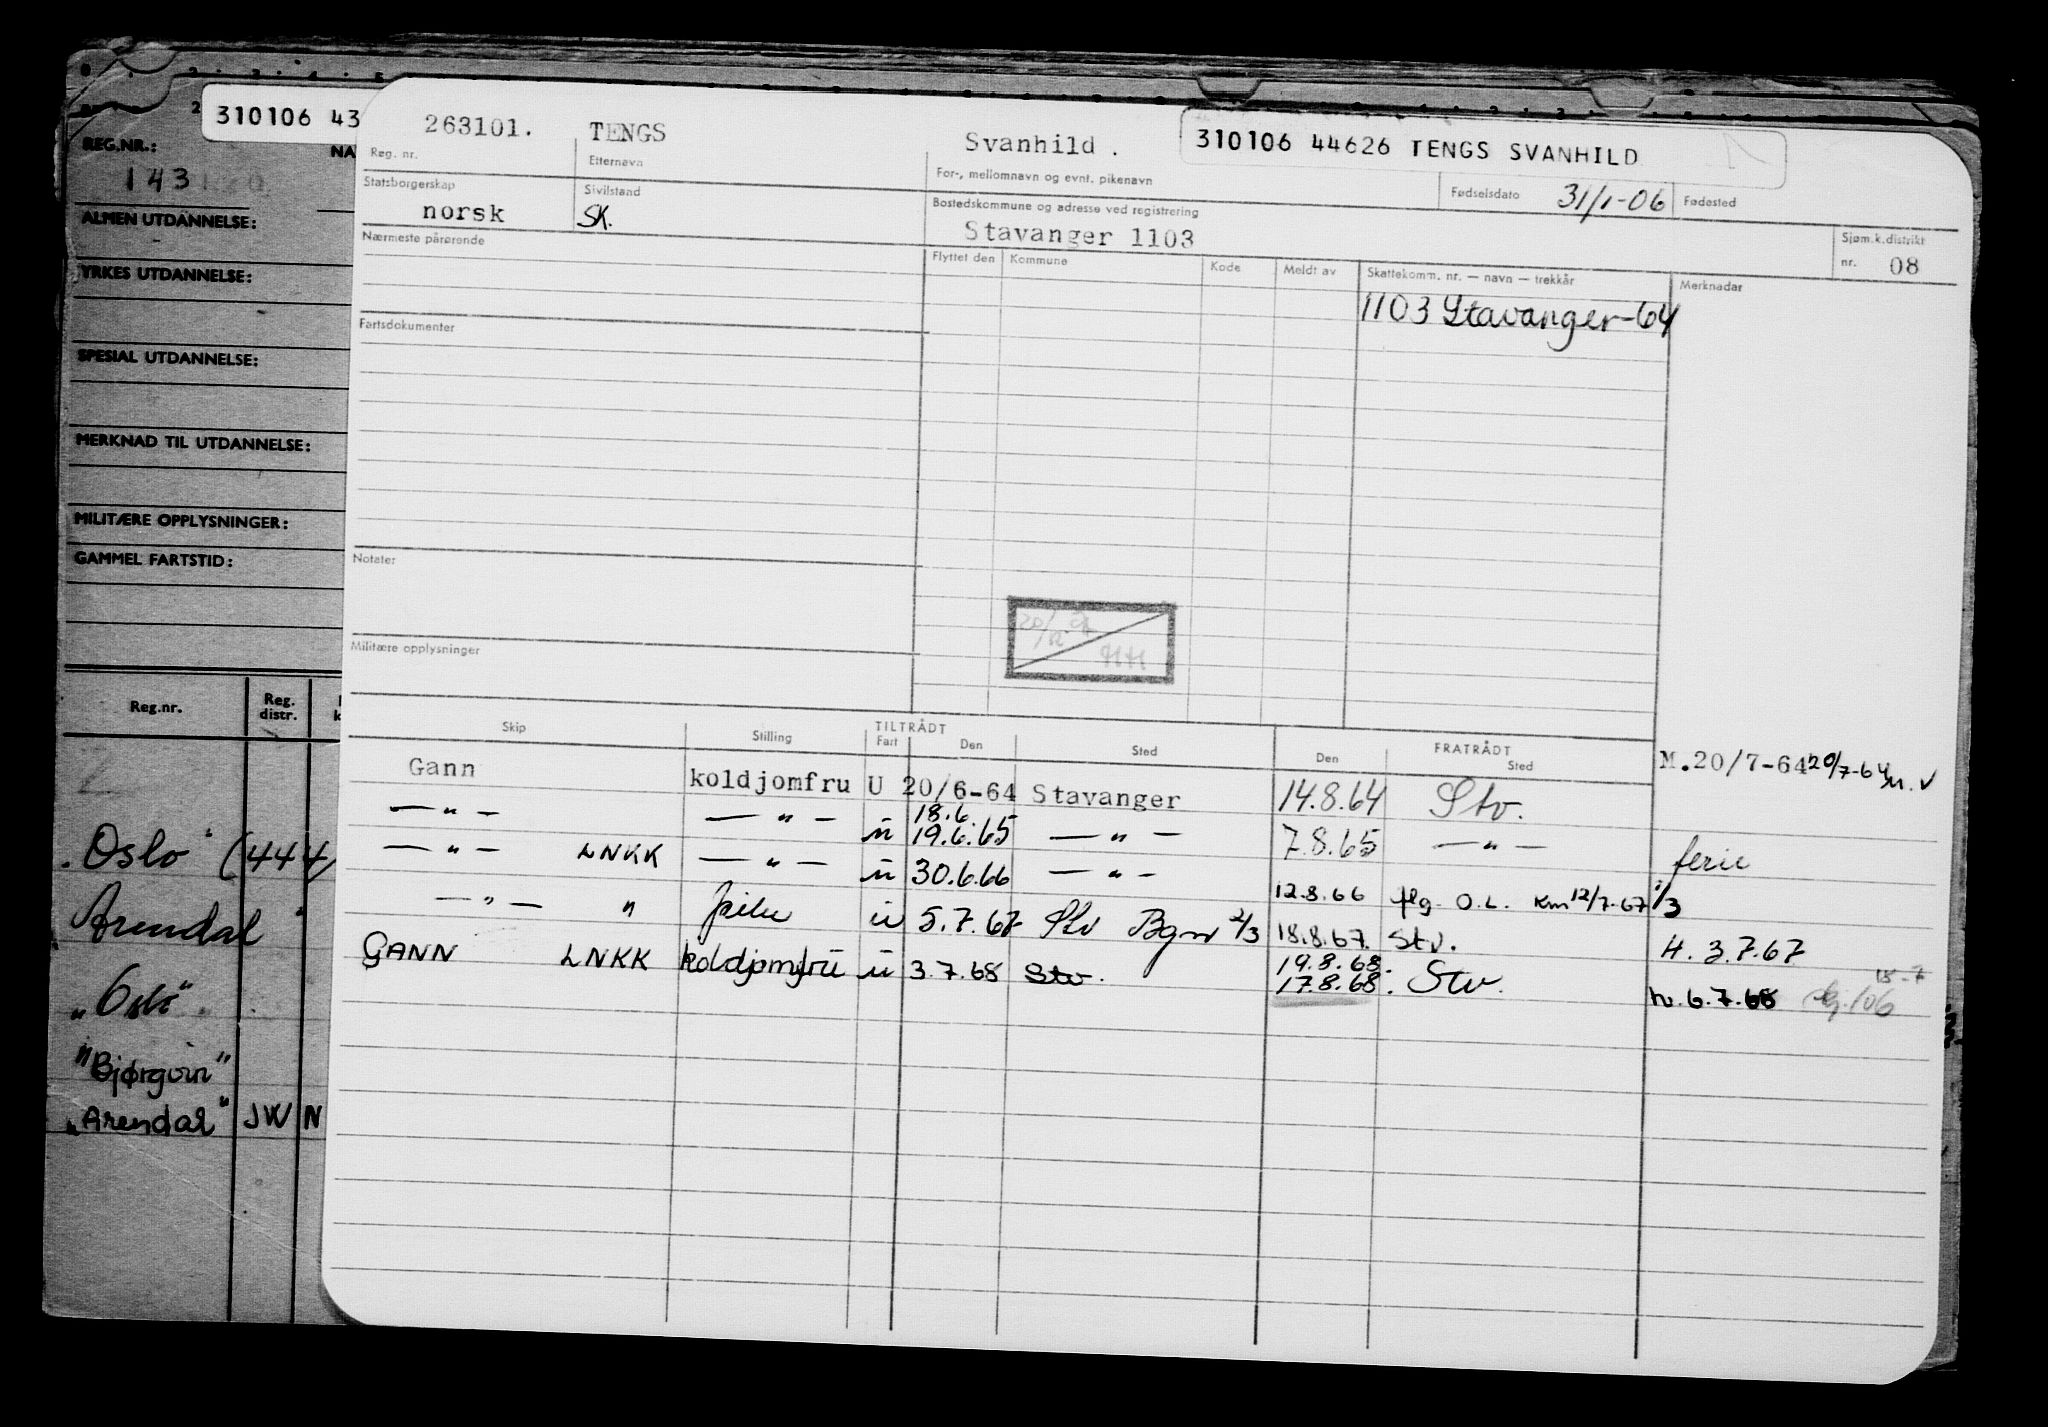 310106 43
REG.NR.:
NA
143
ALMEN UTDANNELSE:
YRKES UTDANNELSE:
SPESIAL UTDANNELSE:
MERKNAD TIL UTDANNELSE:
MILITÆRE OPPLYSNINGER:
GAMMEL FARTSTID:
Reg.nr. Reg. distr.
Oslo" (444
Arendal"
"Oslo"
"Bjørgvin"
"Arendal" JW N
263101. TENGS Svanhild . 310106 44626 TENGS SVANHILD
Reg. nr. Etternavn For-, mellomnavn og evnt. pikenavn Fødselsdato 31/1-06 Fødested
Statsborgerskap Sivilstand Bostedskommune og adresse ved registrering
norsk SK. Stavanger 1103 Sjøm.k.distrikt nr. 08
Nærmeste pårørende Flyttet den Kommune Kode Meldt av Skattekomm. nr. — navn — trekkår Merknader
1103 Stavanger-64
Fartsdokumenter
Notater
20/12
HH
Militære opplysninger
Skip Stilling TILTRÅDT Fart Den Sted FRATRÅDT Den Sted
Gann koldjomfru U 20/6-64 Stavanger 14.8.64 Stv. M.20/7-64 20/7-64 v
— " — — " — ü 18.6. 19.6.65 — " — 7.8.65 — " — ferie
— " — LNKK — " — ü 30.6.66 — " — 12.8.66 flg. O.L. Km 12/7-67 1/3
— " — " ü 5.7.67 Stv Bgn 2/3 18.8.67. Stv. H. 3.7.67
GANN LNKK koldjomfru ü 3.7.68 Stv. 19.8.68. 17.8.68. Stv. 6.7.68 18-7 106